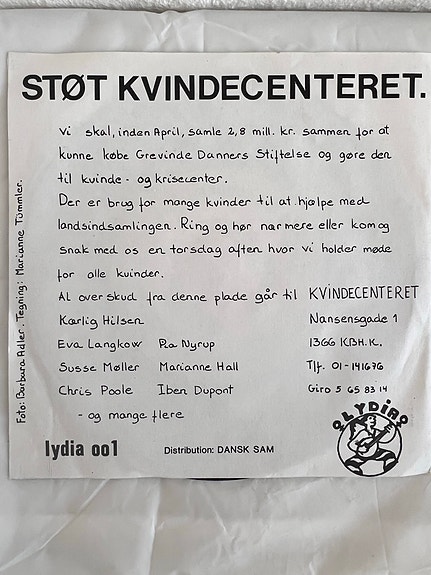 STØT KVINDECENTERET.
Vi skal, inden April, samle 2,8 mill. kr. sammen for at
kunne købe Grevinde Danners Stiftelse og gøre den
til kvinde- og krisecenter.
Der er brug for mange kvinder til at hjælpe med
landsindsamlingen. Ring og hør nærmere eller kom og
snak med os en torsdag aften hvor vi holder møde
for alle kvinder.
Al overskud fra denne plade går til KVINDECENTERET
Kærlig Hilsen Nansensgade 1
Eva Langkow Pia Nyrup 1366 KBH.K.
Susse Møller Marianne Hall Tlf. 01-141676
Chris Poole Iben Dupont Giro 5 65 83 14
- og mange flere
Foto: Barbara Adler. Tegning: Marianne Tümmler.
LYDIA
lydia 001 Distribution: DANSK SAM